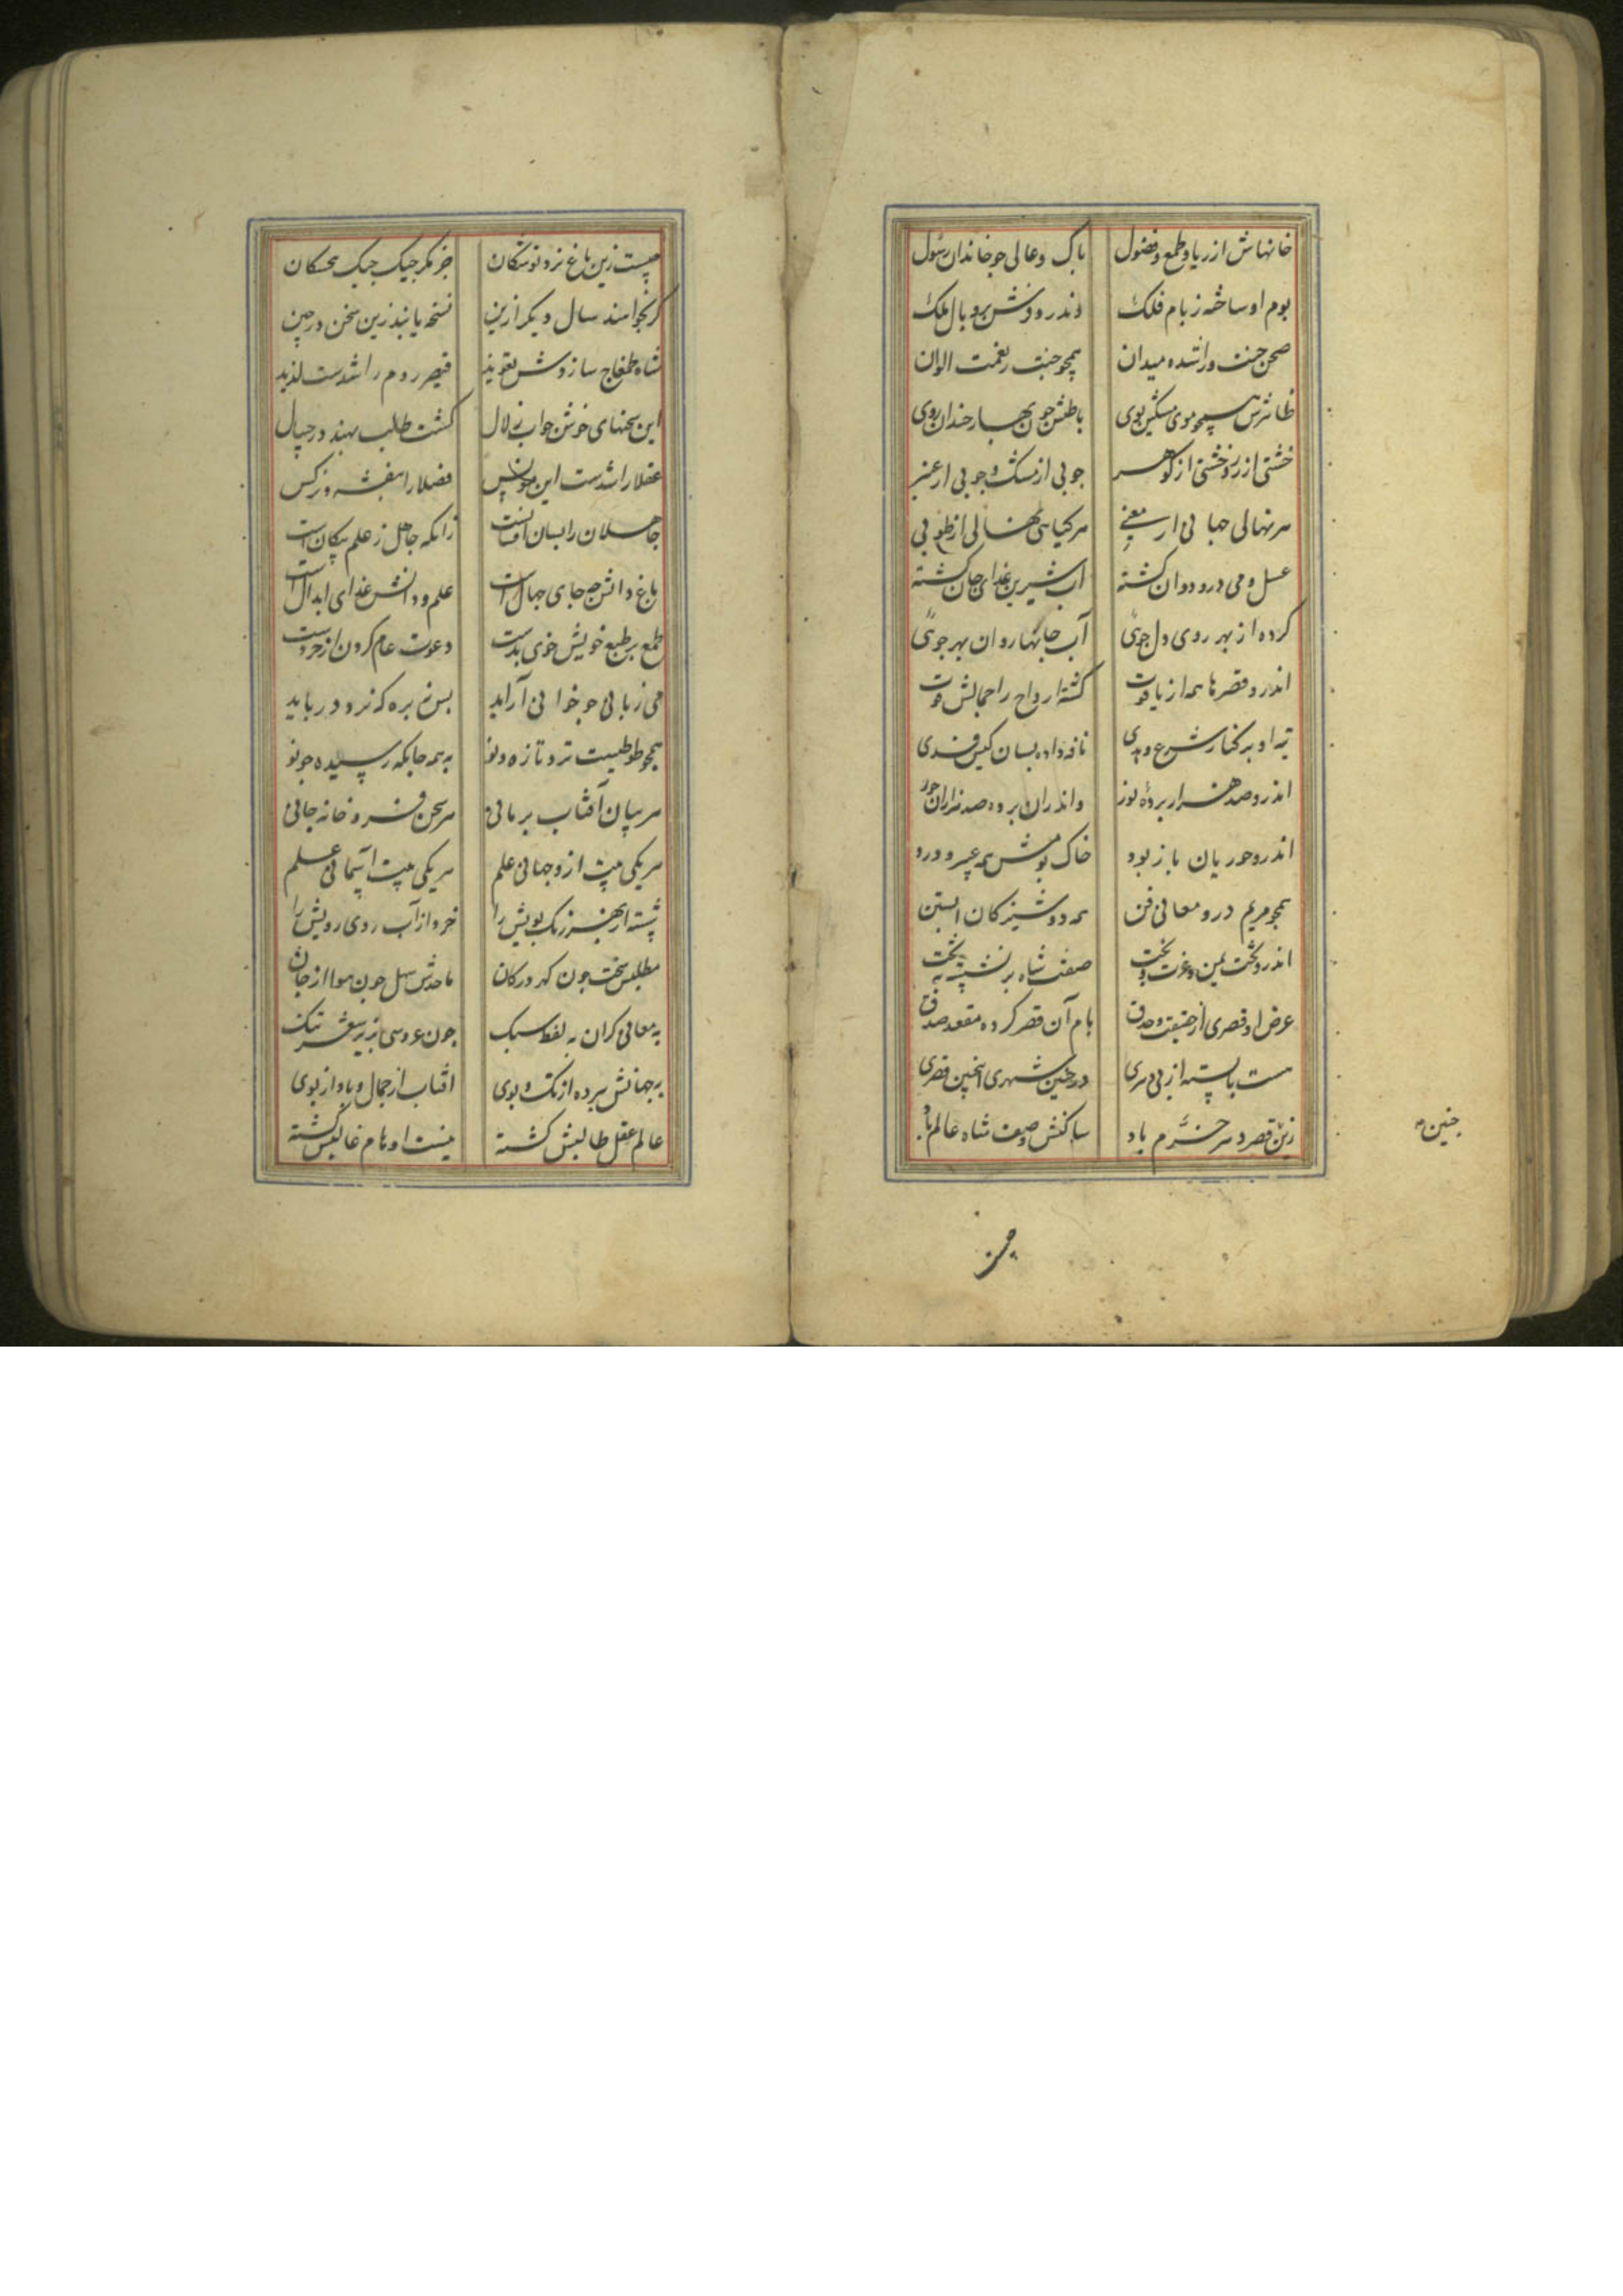 خانهاش از ریا و طمع و فضول پاک و عالی چو خاندان رسول
بوم او ساخته ز بام فلک وندر و فرش پر و بال ملک
صحن جنت ورا شده میدان همچو جنت ز نعمت الوان
ظاهرش همچو موی مشکین بوی باطنش چون بهار خندان روی
خشتی از زر و خشتی از گوهر جوبی از مشک و جوبی از عنبر
هر نهالی جهانی از معنی هر گیاهی نهالی از طوبی
عسل و می درو روان گشته آب شیرین غذای جان گشته
کرده از بهر روی دل جوئی آب جانها روان بهر جوئی
اندرو قصرها همه از یاقوت گشته ارواح را جمالش قوت
اندرو صد هزار پرده نور واندران پرده صد هزاران حور
اندرو حوریان با زیور خاک بومش همه
همچو مریم درو معانی فن همه دوشیزگان آبستن
اندرو تخت یمن و عزت و بخت صفت شاه بر نشسته به تخت
عرض او قصری از حقیقت و صدق بام آن قصر کرده مقعد صدق
هست بایسته از پی سری در چنین شهری اینچنین قصری
زین قصر و سر خرم باد ساکنش وصف شاه عالم باد
چنین
چیست
چیست زین باغ نزد نوشکان جز مگر جیک جیک بنجشکان
گر بخواهند سال دیگر ازین نسخه یابند زین سخن در چین
شاه طمغاج سازدش تعویذ قیصر روم را شدست لذیذ
این سخنهای خوش چو آب زلال گشت طلب بهند در جیپال
عقلا را شدست این مونس فضلا را بنفشه و نرگس
جاهلان را بسان افسانست زانکه جاهل ز علم بیگانست
باغ دانش نه جای جهالست علم و دانش غذای ابدالست
طمع بر طبع خویش خوی بدست دعوت عام کردن از خردست
میزبانی چو خوانی آراید پس نه بره که نزد در باید
همچو طوطیست تر و تازه و نو به همه جایگه رسیده چو نو
هر بیان آفتاب برهانی هر سخن در و خانه جانی
هر یکی بیت ازو جهانی علم هر یکی بیت آسمانی علم
شسته از بهر رنگ و بویش را خرد از آب روی رویش را
مطلبش سخت چون گهر در کان ماخذش سهل چون هوا از جان
به معانی گران به لفظ سبک چون عروسی به زیر شعر تنک
به جهانش برده از تک و پوی آفتاب از جمال و باد از بوی
عالم عقل طالبش گشته نیست اوهام غالبش گشته